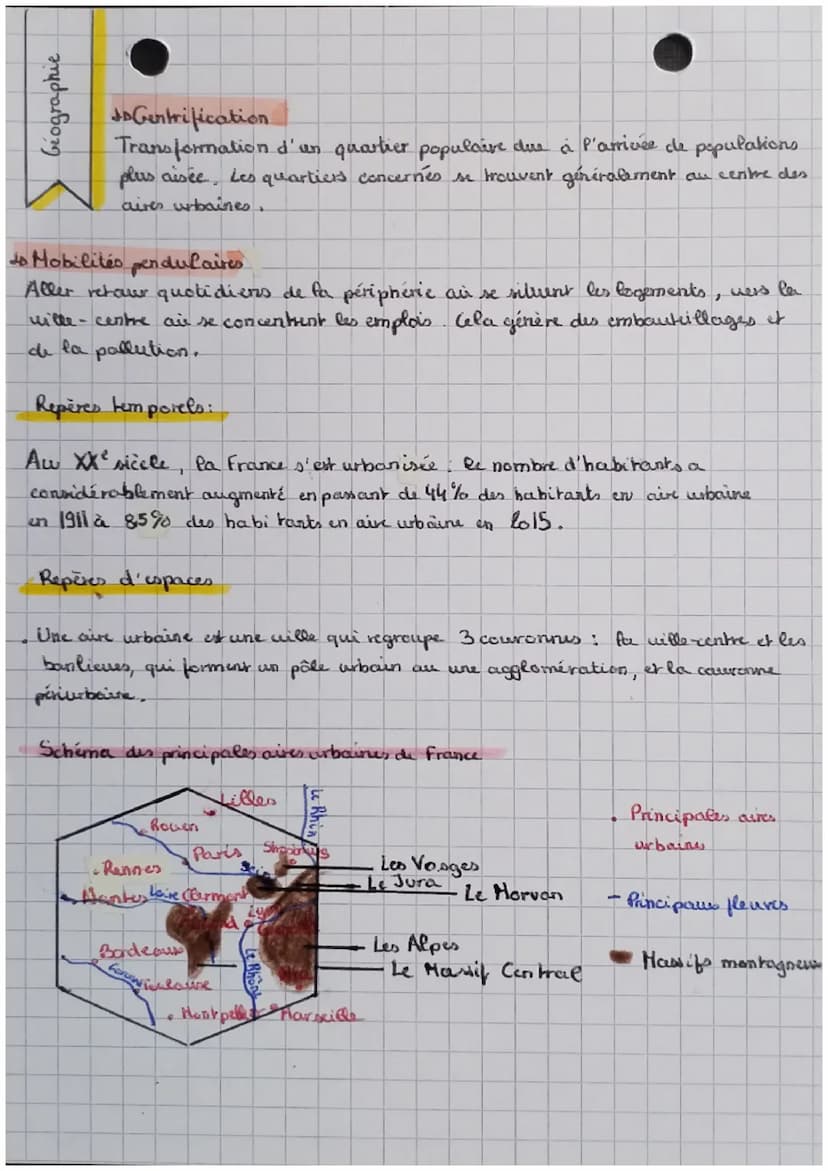 Géographie
↳ Gentrification
Transformation d'un quartier populaire due à l'arrivée de populations
plus aisée. Les quartiers concernés se trouvent généralement au centre des
aires urbaines.
↳ Mobilités pendulaires
Aller retour quotidiens de la périphérie où se situent les logements, vers la
ville-centre où se concentrent les emplois. Cela génère des embouteillages et
de la pollution.
Repères temporels:
Au XXe siècle, la France s'est urbanisée : le nombre d'habitants a
considérablement augmenté en passant de 44% des habitants en aire urbaine
en 1911 à 85% des habitants en aire urbaine en 2015.
Repères d'espaces
. Une aire urbaine est une ville qui regroupe 3 couronnes : la ville-centre et les
banlieues, qui forment un pôle urbain ou une agglomération, et la couronne
périurbaine.
Schéma des principales aires urbaines de France
Lilles
Le Rhin
Rouen
Paris
Rennes
Nantes
Loire
Clermont
Lyon
Bordeaux
Le Rhône
Montpellier
Marseille
Les Vosges
Le Jura
Le Morvan
Les Alpes
Le Massif Central
. Principales aires
urbaines
- Principaux fleuves
Massifs montagneux